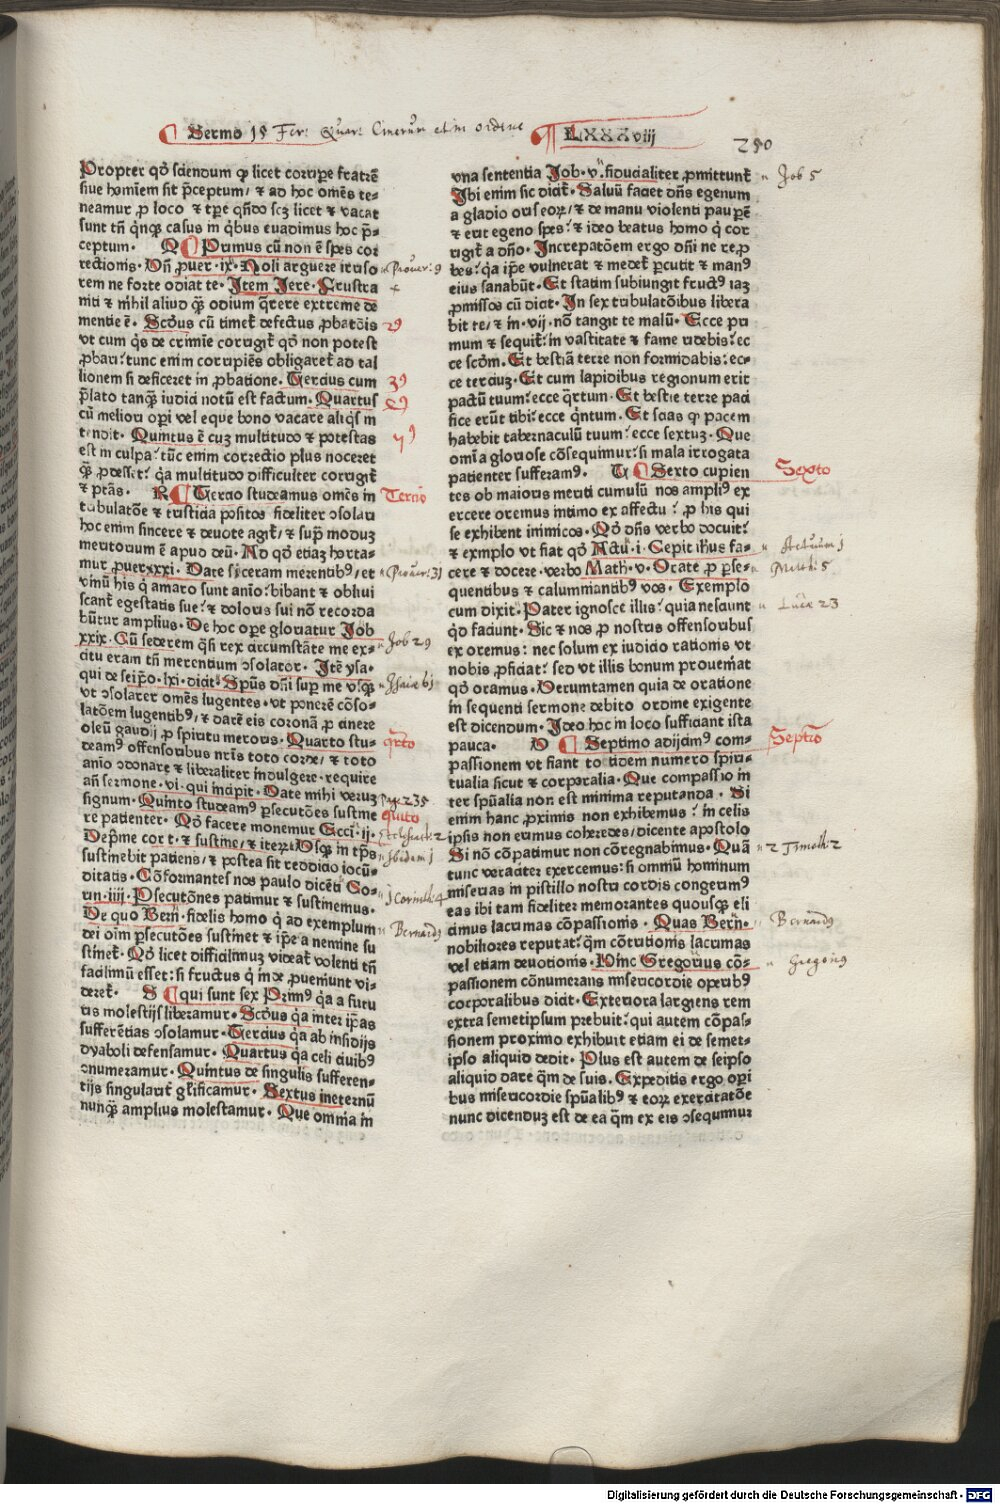 Sermo 15 Fer: Quar: Cinerum et in ordine LXXXviij
250
Propter qd̓ sciendum ꝙ licet corripe fratrē
siue hominem sit p̄ceptum/ ⁊ ad hoc om̄es te-
neamur ꝓ loco ⁊ tp̄e qn̄do scꝫ licet ⁊ vacat
sunt tn̄ qnqꝫ casus in qbus euadimus hoc p̄-
ceptum. Q Primus cū non ē spes cor
rectionis. Vn̄ ꝓuer. ix. Noli arguere irriso
rem ne forte odiat te. Item Jere. Frustra
niti ⁊ nihil aliud qꝫ odium q̄rere extreme de
mentie ē. Scd̓us cū timet᷑ defectus ꝓbatōis
vt cum qs de crimīe corrigit᷑ qd̓ non potest
ꝓbari: tunc enim corripiēs obligaret᷑ ad tal
lionem si deficeret in ꝓbatione. Tercius cum
p̄lato tanqꝫ iudici notū est factum. Quartus
cū meliori oꝑi vel eque bono vacare aliqs in
tendit. Quintus ē cuꝫ multitudo ⁊ potestas
est in culpa: tūc enim correctio plus noceret
qꝫ ꝓdesset: qa multitudo difficulter corrigit᷑
⁊ ptās. R Tercio studeamus om̄es in
tribulatōe ⁊ tristicia positos fideliter ꝯsolari
hoc enim sincere ⁊ deuote agit᷑/ ⁊ supra moduꝫ
meritorium ē apud deū. Ad qd̓ etiaꝫ horta-
mur ꝓuer. xxxi. Date siceram merentibꝰ/ et
vinū his q amaro sunt anio: bibant ⁊ obliui
scant᷑ egestatis sue: ⁊ doloris sui nō recorda
būtur amplius. De hoc oꝑe gloriatur Job
xxix. Cū sederem qsi rex circumstāte me ex-
citu eram tn̄ merentium ꝯsolator. Itē ysa.
qui de seip̄o. lxi. dicit. Spūs dn̄i suꝑ me vsqꝫ
vt ꝯsolarer om̄es lugentes. vt ponerē cōso-
latōem lugentibꝰ/ ⁊ darē eis coronā ꝓ cinere
oleū gaudij ꝓ spiritu meroris. Quarto stu-
deamꝰ offensoribus nr̄is toto corde/ ⁊ toto
anio ꝯdonare ⁊ liberaliter indulgere. require
an̄ sermone. vi. qui incipit. Date mihi veruꝫ
signum. Quinto studeamꝰ ꝑsecutōes sustine
re patienter. Qd̓ facere monemur Ecci. ij.
Dep̄me cor t. ⁊ sustine/ ⁊ iteꝝ: Vsqꝫ in tp̄s
sustinebit patiens/ ⁊ postea sit redditio iocū-
ditatis. Cōformantes nos paulo dicēti Co-
rin. iiij. Psecutōnes patimur ⁊ sustinemus.
De quo Bern̄. fidelis homo q ad exemplum
dei oim̄ ꝑsecutōes sustinet ⁊ ip̄e a nemine su
stinet᷑. Qd̓ licet difficilimuꝫ videat᷑ volenti tn̄
facilimū esset: si fructus q inde ꝓueniunt vi-
deret᷑. S qui sunt sex Primꝰ qa a futu
ris molestijs liberamur. Scd̓us qa inter ip̄as
sufferētias ꝯsolamur. Tercius qa ab insidijs
dyaboli defensamur. Quartus qa celi ciuibꝰ
ꝯnumeramur. Quintus de singulis sufferen-
tijs singularit᷑ gl̓ificamur. Sextus ineternū
nunqꝫ amplius molestamur. Que omnia in
Prouer: 9
+
2ꝰ
3ꝰ
4ꝰ
5ꝰ
Tertio
Prouer: 31
Job 29
Isaie 61
qrto
Pag: 235
quito
Ecclesiast: 2
Ibidem 1
1 Corinth: 4
Bernardꝰ
vna sententia Job. v. fiducialiter ꝓmittunt᷑
Ibi enim sic dicit᷑. Saluū faciet dn̄s egenum
a gladio oris eoꝝ/ ⁊ de manu violenti pauꝑē
⁊ erit egeno spes: ⁊ ideo beatus homo q cor
rigit᷑ a dn̄o. Increpatōem ergo dn̄i ne repro
bes: qa ip̄e vulnerat ⁊ medet᷑ ꝑcutit ⁊ manꝰ
eius sanabūt. Et statim subiungit fructꝰ iaꝫ
ꝓmissos cū dicit. In sex tribulatōibus libera
bit te/ ⁊ in. vij. nō tangit te malū. Ecce pri
mum ⁊ sequit᷑: in vastitate ⁊ fame ridebis: ec
ce scd̓m. Et bestiā terre non formidabis: ec-
ce terciuꝫ. Et cum lapidibus regionum erit
pactū tuum: ecce qrtum. Et bestie terre paci
fice erūt tibi: ecce qntum. Et scias ꝙ pacem
habebit tabernaculū tuum: ecce sextuꝫ. Que
omīa gloriose cōsequimur: si mala irrogata
patienter sufferamꝰ. T Sexto cupien
tes ob maioris meriti cumulū nos ampliꝰ ex
ercere oremus intimo ex affectu: ꝓ his qui
se exhibent inimicos. Qd̓ dn̄s verbo docuit:
⁊ exemplo vt fiat qd̓ Actu. i. Cepit ih̄us fa-
cere ⁊ docere. verbo Math. v. Orate ꝓ ꝑse-
quentibus ⁊ calumniantibꝰ vos. Exemplo
cum dixit. Pater ignosce illis: quia nesciunt
qd̓ faciunt. Sic ⁊ nos ꝓ nostris offensoribus
ex oremus: nec solum ex iudicio rationis vt
nobis ꝓficiat: sed vt illis bonum proueniat
qd̓ oramus. Verumtamen quia de oratione
in sequenti sermone debito ordine exigente
est dicendum. Ideo hoc in loco sufficiant ista
pauca. V Septimo adijciamꝰ com-
passionem vt fiant to tidem numero spiri-
tualia sicut ⁊ corporalia. Que compassio in
ter spūalia non est minima reputanda. Si
enim hanc ꝓximis non exhibemus: in celis
ipsis non erimus coheredes/ dicente apostolo
Si nō cōpatimur non cōregnabimus. Quā
tunc veraciter exercemus: si omniū hominum
miserias in pistillo nostri cordis congerimꝰ
eas ibi tam fideliter memorantes quousqꝫ eli
cimus lacrimas cōpassionis. Quas Bern̄.
nobiliores reputat: qm̄ cōtritionis lacrimas
vel etiam deuotionis. Hinc Gregorius cō-
passionem cōnumerans misericordie operibꝰ
corporalibus dicit. Exteriora largiens rem
extra semetipsum prebuit: qui autem cōpas-
sionem proximo exhibuit etiam ei de semet-
ipso aliquid dedit. Plus est autem de seipso
aliquid dare qm̄ de suis. Expeditis ergo oꝑi
bus misericordie spūalibꝰ ⁊ eoꝝ exercitatōe
nunc dicenduꝫ est de ea qm̄ ex eis ꝯsequimur
Job 5
Sexto
Actuum 1
Matth: 5
Lucæ 23
Septio
2 Timoth: 2
Bernardꝰ
Gregoriꝰ
Digitalisierung gefördert durch die Deutsche Forschungsgemeinschaft - DFG